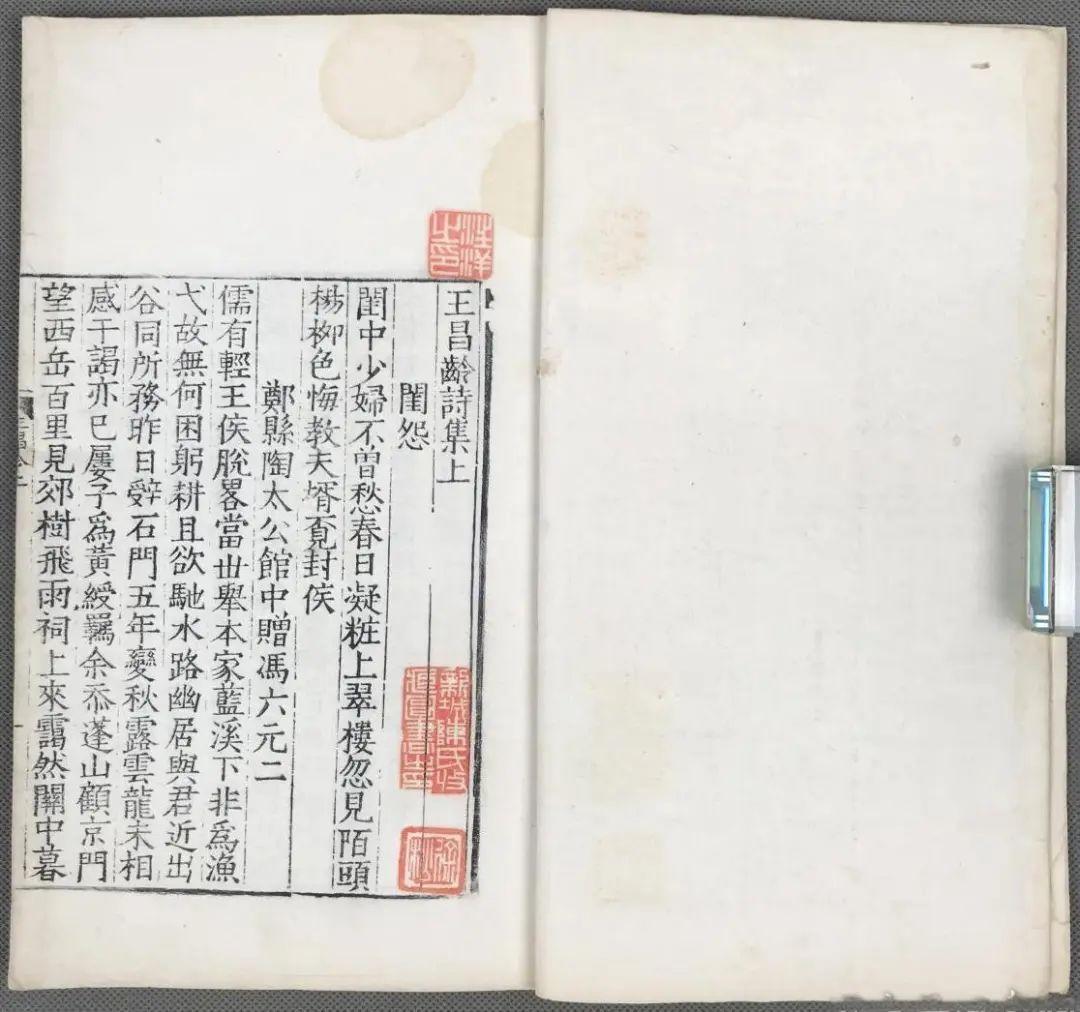 王昌齡詩集上
閨怨
閨中少婦不曽愁春日凝粧上翠樓忽見陌頭
楊柳色悔教夫壻覔封侯
鄭縣陶太公館中贈馮六元二
儒有輕王侯脫畧當世舉本家藍溪下非爲漁
弋故無何困躬耕且欲馳水路幽居與君近出
谷同所務昨日辭石門五年變秋露雲龍未相
感干謁亦已屢子爲黃綬羈余忝蓬山顧京門
望西岳百里見郊樹飛雨祠上來靄然關中暮
汪洋之印
新城陳氏收